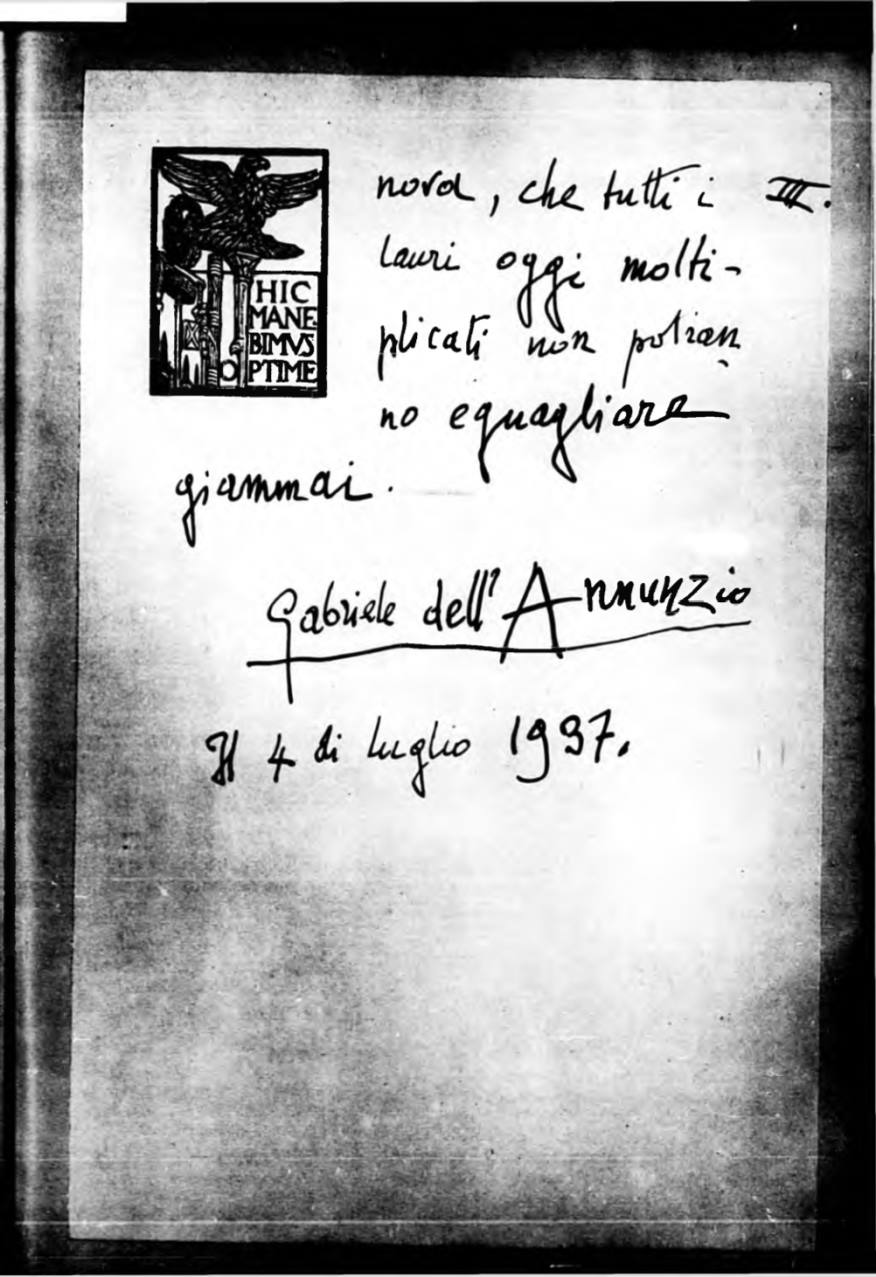 III.
HIC
MANE
BIMVS
OPTIME
nova, che tutti i
lauri oggi molti-
plicati non potran
no eguagliare
giammai.
Gabriele dell'Annunzio
Il 4 di luglio 1937.